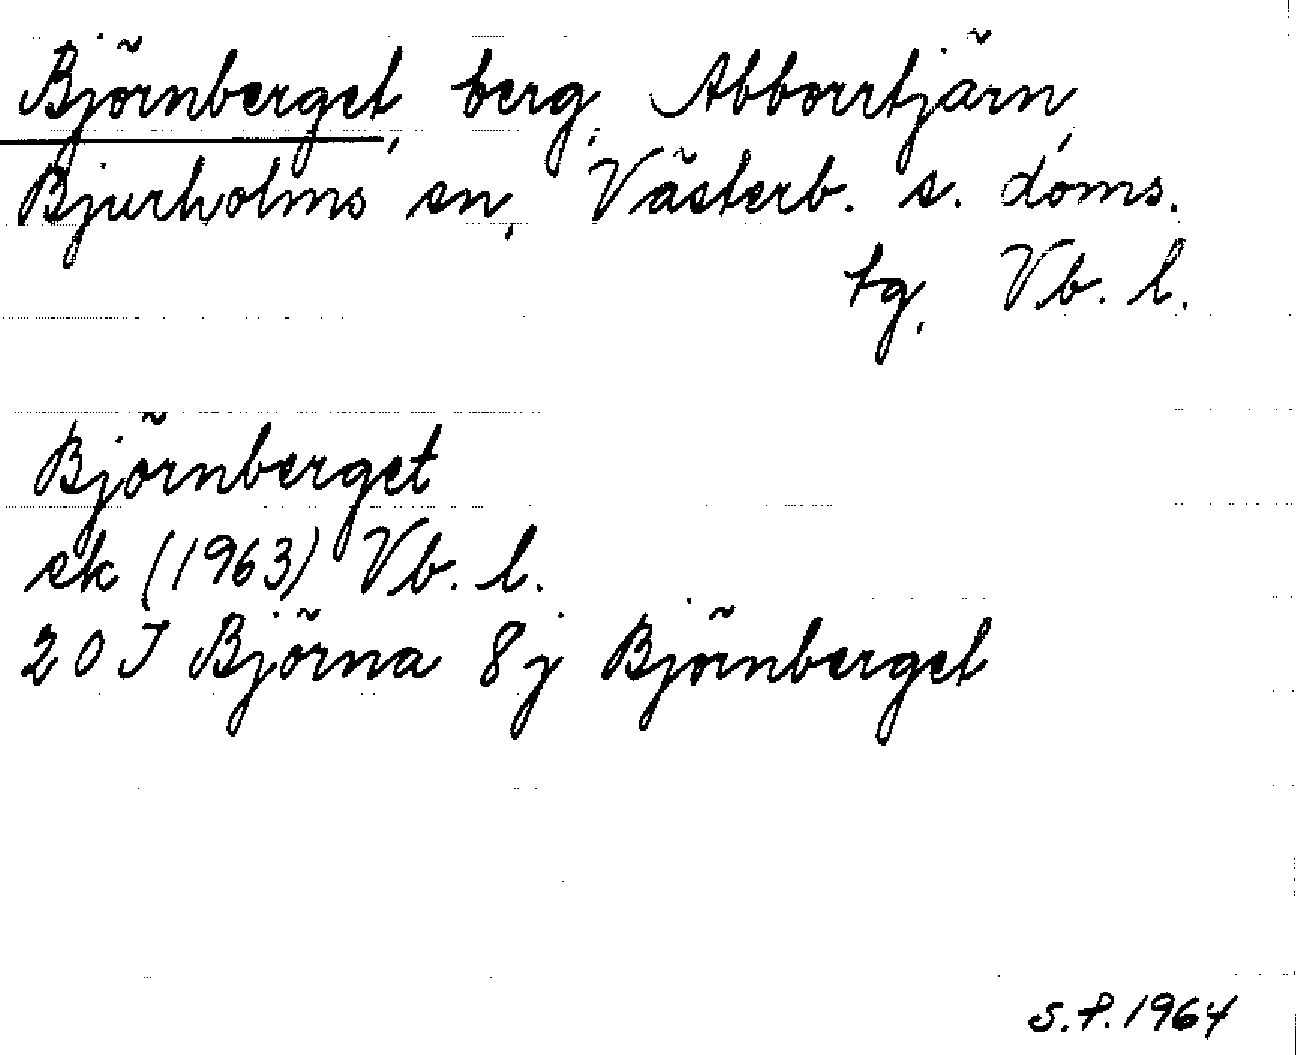 Björnberget, berg, Abborrtjärn,
Bjurholms sn, Västerb. s. doms.
tg, Vb. l.
Björnberget
ek (1963) Vb. l.
20 I Björna 8j Björnberget
S.P. 1964